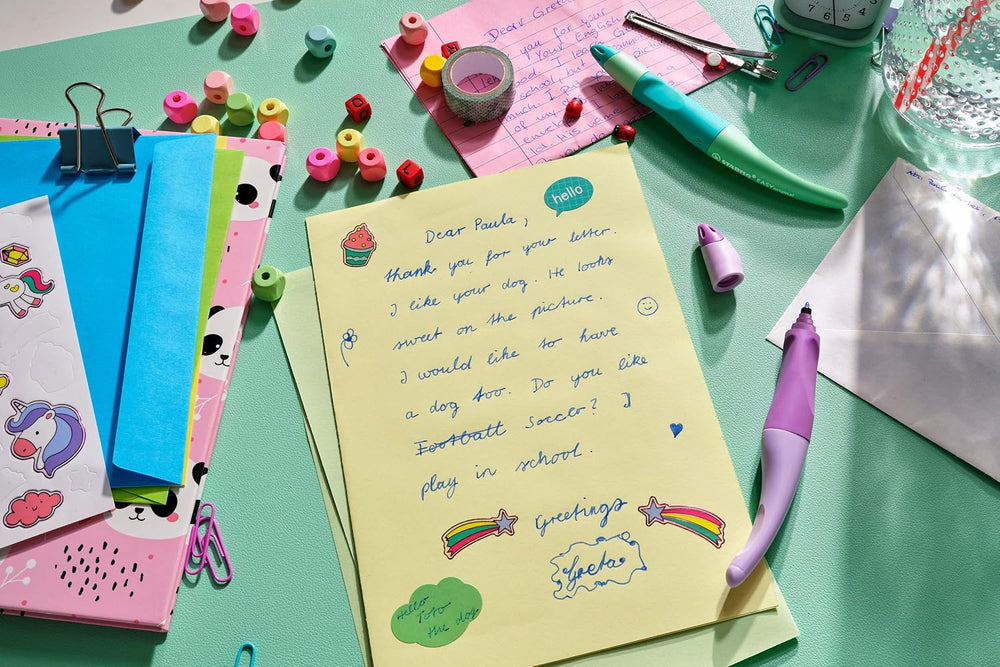 Dear Greta
you for your
Your English
good. I lea
school, but
much. I
of my
hello
Dear Paula,
thank you for your letter.
I like your dog. He looks
sweet on the picture.
I would like to have
a dog too. Do you like
Football Soccer? I
play in school.
Greetings
Greta
Hello
Toto
the dog
STABILO EASYoriginal
7 6 5 4